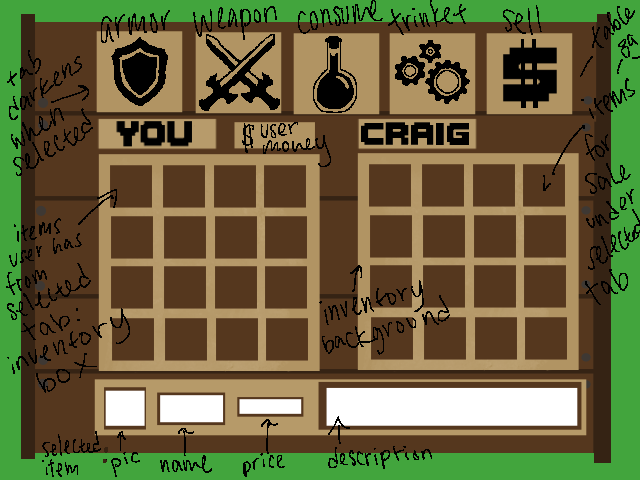 armor weapon consume trinket sell
tab
darkens
when
selected
table
bg
YOU
$ user
money
CRAIG
items
for
sale
under
selected
tab
items
user has
from
selected
tab:
inventory
box
inventory
background
selected
item
pic
name
price
description